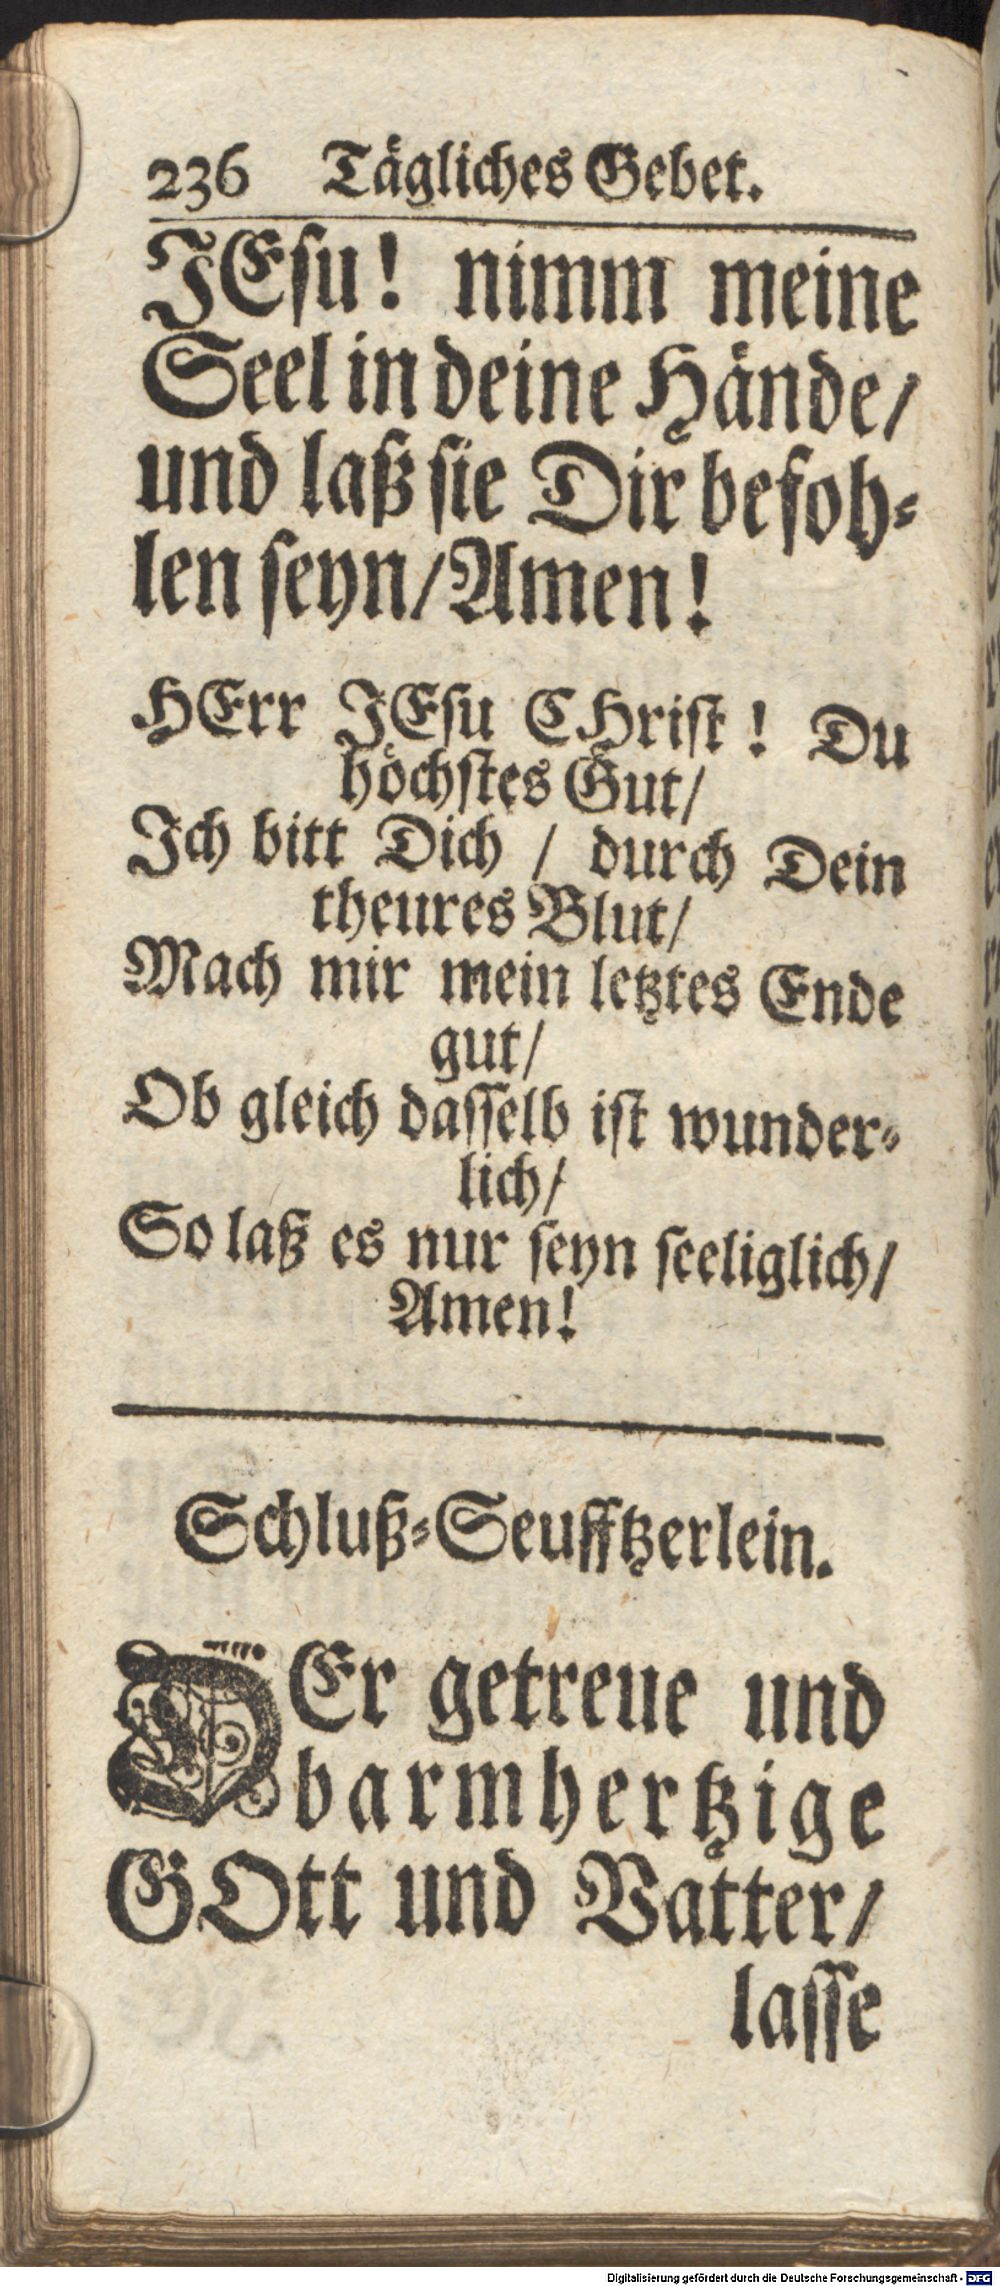 236 Tägliches Gebet.
JEsu! nimm meine
Seel in deine Hände/
und laß sie Dir befoh-
len seyn/ Amen!
HErr JEsu CHrist! Du
höchstes Gut/
Ich bitt Dich / durch Dein
theures Blut/
Mach mir mein letztes Ende
gut/
Ob gleich dasselb ist wunder-
lich/
So laß es nur seyn seeliglich/
Amen!
Schluß-Seufftzerlein.
DEr getreue und
barmhertzige
GOtt und Vatter/
lasse
Digitalisierung gefördert durch die Deutsche Forschungsgemeinschaft - DFG